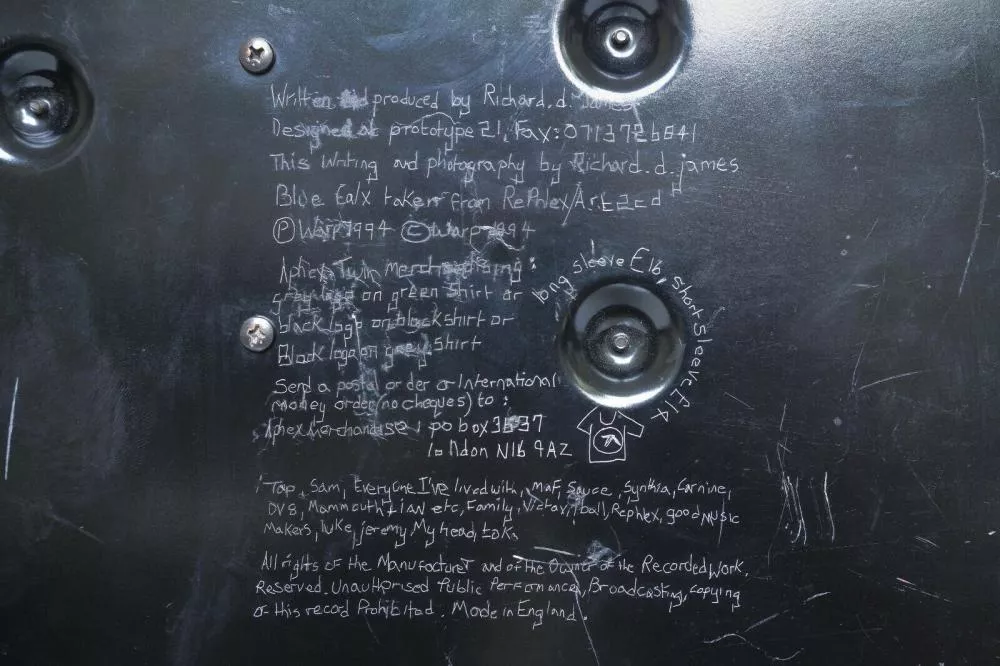 Written and produced by Richard. d. James
Designed at prototype 21, Fax: 071 3726541
This Writing and photography by Richard. d. james
Blue Calx taken from Rephlex
Ⓟ Warp 1994 © Warp 1994
Aphex Twin merchandising:
grey logo on green Shirt or
black logo on black shirt or
Black logo on grey Shirt
long sleeve £16, short sleeve £14
Send a postal order or International
money order (no cheques) to:
Aphex Merchandise: po box
london N16 9AZ
Tap, Sam, Everyone I've lived with, Maf, Sauce, Synthia,
DV8, Mammouth, Ian etc, Family, Rephlex, good Music
Makers, luke, jeremy My head,
All rights of the Manufacturer and of the Owner of the Recorded Work,
Reserved. Unauthorised Public Performance, Broadcasting, copying
of this record Prohibited. Made in England.